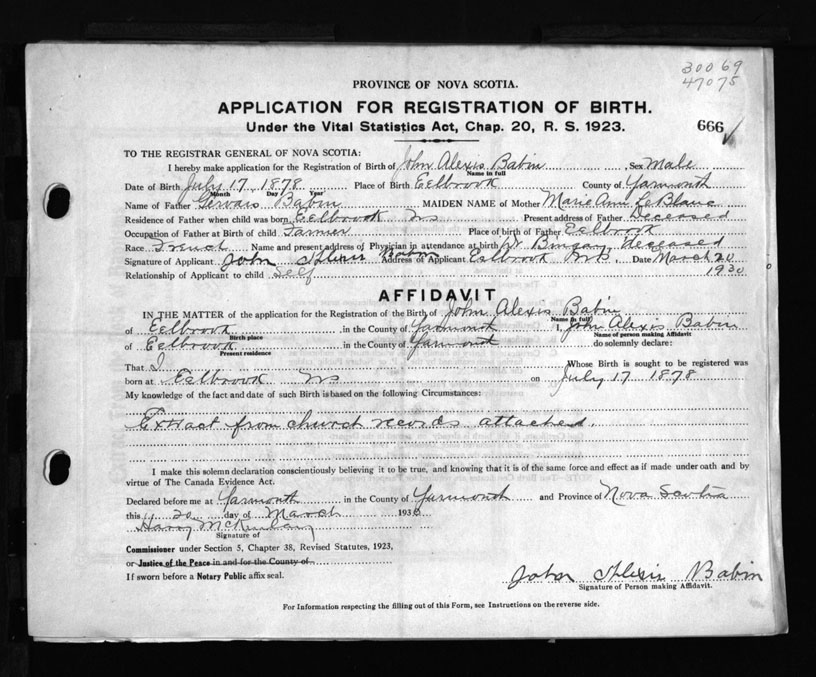 30069
47075
PROVINCE OF NOVA SCOTIA.
APPLICATION FOR REGISTRATION OF BIRTH.
666
Under the Vital Statistics Act, Chap. 20, R. S. 1923.
TO THE REGISTRAR GENERAL OF NOVA SCOTIA:
I hereby make application for the Registration of Birth of John Alexis Babin, Sex Male
Name in full
Date of Birth July 17 1878 Place of Birth Eelbrook County of Yarmouth
Month Day Year
Name of Father Gervais Babin MAIDEN NAME of Mother Marie Ann LeBlanc
Residence of Father when child was born Eelbrook NS Present address of Father Deceased
Occupation of Father at Birth of child Farmer Place of birth of Father Eelbrook
Race French Name and present address of Physician in attendance at birth Bingay, deceased
Signature of Applicant John Alexis Babin Address of Applicant Eelbrook NS. Date March 20
1930
Relationship of Applicant to child Self
AFFIDAVIT
IN THE MATTER of the application for the Registration of the Birth of John Alexis Babin
Name in full
of Eelbrook, in the County of Yarmouth I, John Alexis Babin
Birth place Name of person making Affidavit
of Eelbrook in the County of Yarmouth do solemnly declare:
Present residence
That I Whose Birth is sought to be registered was
born at Eelbrook NS on July 17 1878
My knowledge of the fact and date of such Birth is based on the following Circumstances:
Extract from church records attached.
I make this solemn declaration conscientiously believing it to be true, and knowing that it is of the same force and effect as if made under oath and by
virtue of The Canada Evidence Act.
Declared before me at Yarmouth in the County of Yarmouth and Province of Nova Scotia
this 20 day of March 1930
Harry
Signature of
Commissioner under Section 5, Chapter 38, Revised Statutes, 1923,
or Justice of the Peace in and for the County of
If sworn before a Notary Public affix seal.
John Alexis Babin
Signature of Person making Affidavit.
For Information respecting the filling out of this Form, see Instructions on the reverse side.